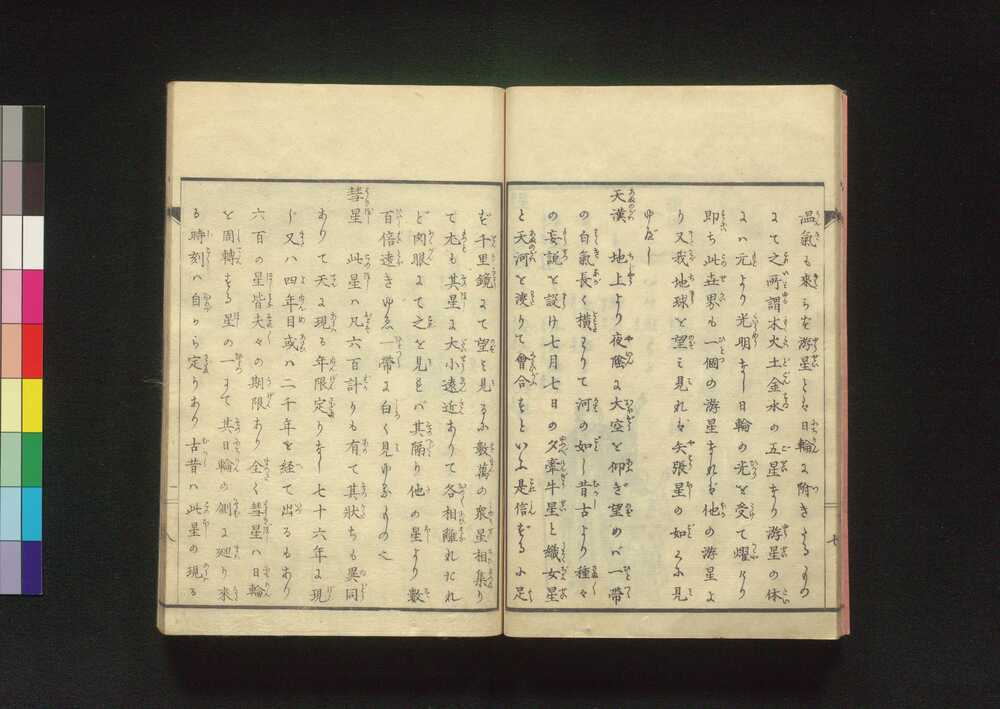 温氣も來らず游星とハ日輪に附きまるもの
にて之所謂木火土金水の五星なり游星の体
ハ元より光明なし日輪の光を受て燿けり
即ち此世界も一個の游星なれば他の游星よ
り又我地球を望み見れば矢張星の如くに見
ゆべし
天漢 地上より夜陰に大空を仰ぎ望めバ一帶
の白氣長く横はりて河の如し昔古より種々
の妄說を設け七月七日の夕牽牛星と織女星
と天河を渡りて會合をといふ是信ずるに足
ず千里鏡にて望み見るに數萬の衆星相集り
て尤も其星に大小遠近ありて各相離れたれ
ど肉眼にて之を見れバ其隔り他の星より數
百倍遠きゆゑ一帶に白く見ゆるもの也
彗星 此星ハ凡六百計りも有て其狀ちも異同
ありて天に現る年限定りなし七十六年に現
じ又ハ四年目或ハ二千年を経て出るもあり
六百の星皆夫々の期限あり全く彗星ハ日輪
を周轉する星の一にて其日輪の側に廻り來
る時刻ハ自ら定りあり古昔ハ此星の現る
七
八